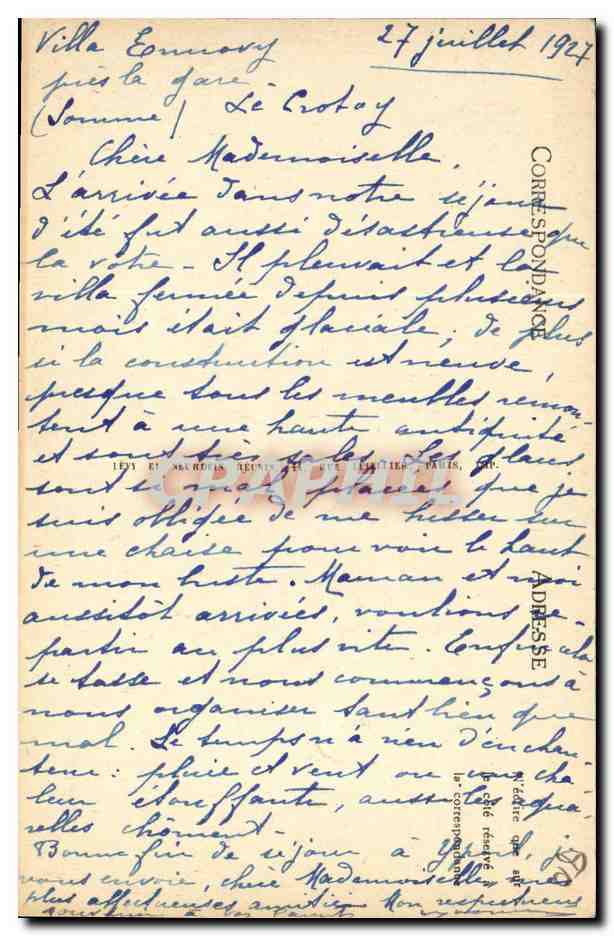 Villa
27 juillet 1927
près la gare
(Somme) Le Crotoy
Chère Mademoiselle,
L'arrivée dans notre séjour
d'été fut aussi désastreuse que
la vôtre - Il pleuvait et la
villa fermée depuis plusieurs
mois était glaciale, de plus
si la construction est neuve,
presque tous les meubles remon-
tent à une haute antiquité
et sont très sales. Les glaces
sont si mal placées que je
suis obligée de me hisser sur
une chaise pour voir le haut
de mon buste. Maman et moi
aussitôt arrivées, voulions re-
partir au plus vite. Enfin cela
se tasse et nous commençons à
nous organiser tant bien que
mal. Le temps n'a rien d'enchan-
teur : pluie et vent ou une cha-
leur étouffante, aussi les aqua-
relles chôment -
Bonne fin de séjour à Yport, je
vous envoie, chère Mademoiselle, mes
plus affectueuses amitiés Mon respectueux
souvenir à vos
CORRESPONDANCE
ADRESSE
LÉVY ET NEURDEIN RÉUNIS, 44, RUE LETELLIER, PARIS, IMP.
CPAPHIL
N'écrire que sur
le côté réservé à
la correspondance